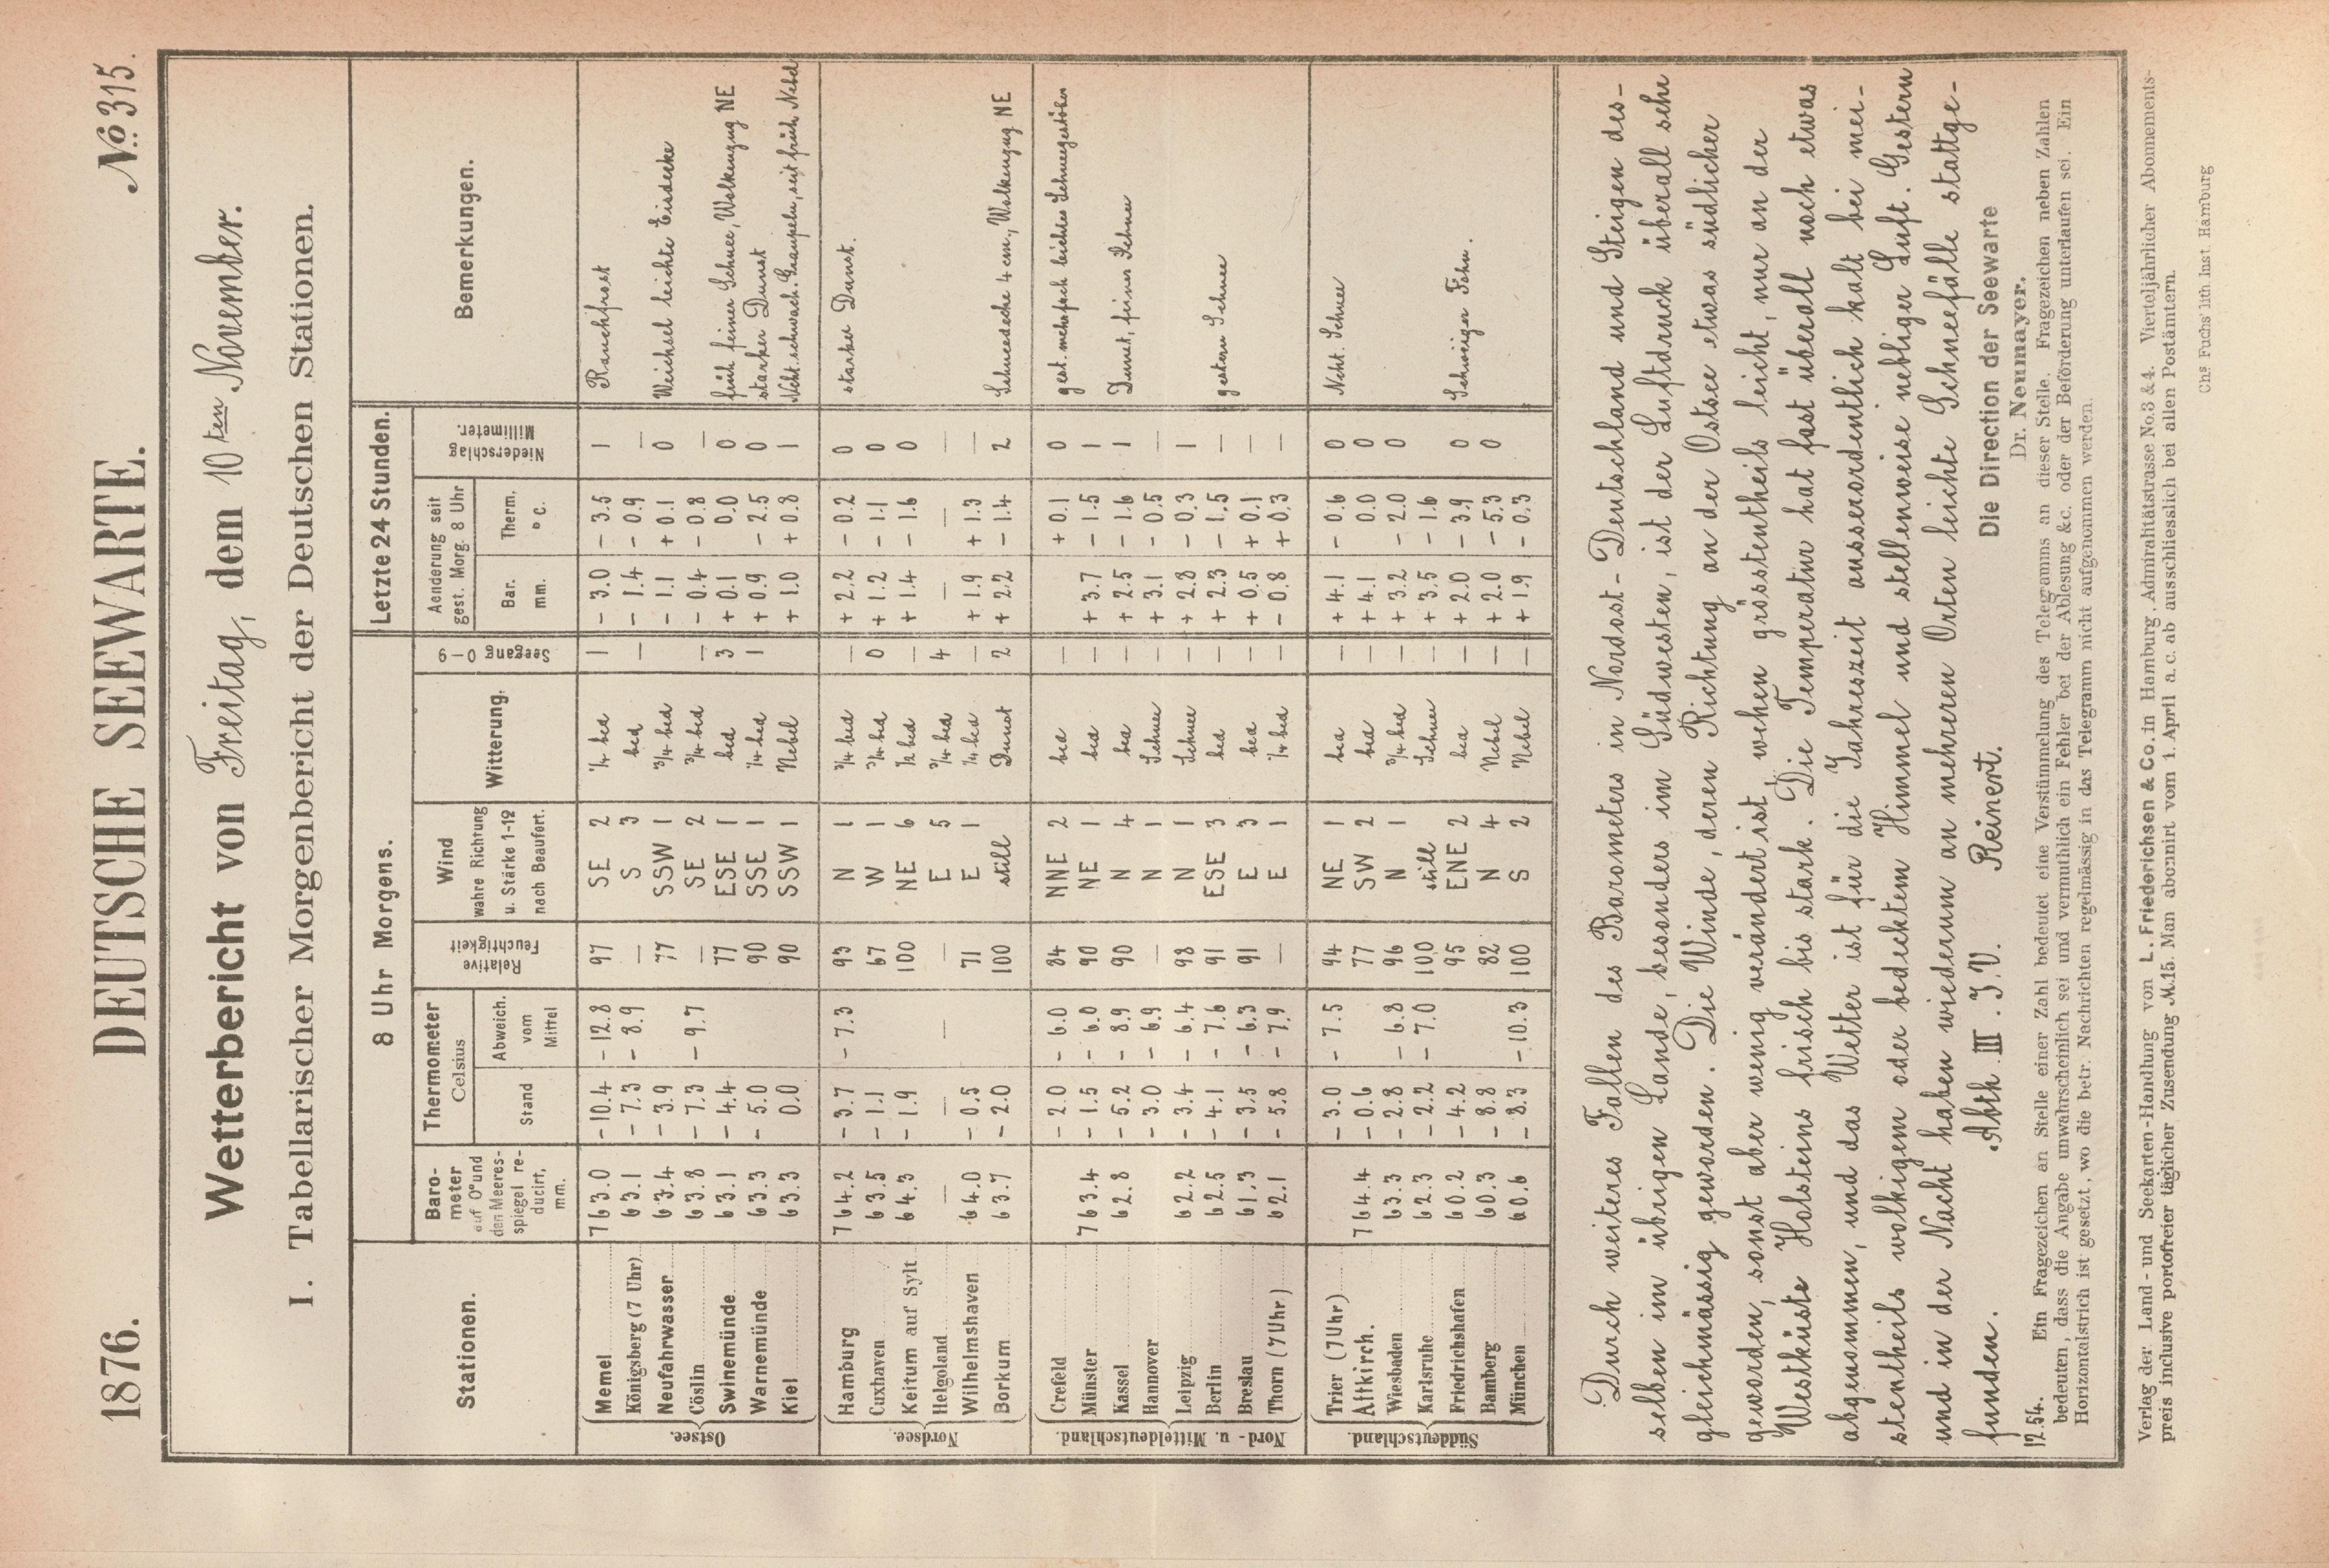 1876. DEUTSCHE SEEWARTE. No. 315.
Wetterbericht von Freitag, dem 10ten November.
I. Tabellarischer Morgenbericht der Deutschen Stationen.
Stationen. 8 Uhr Morgens. Letzte 24 Stunden. Bemerkungen.
Barometer auf 0° und den Meeresspiegel reducirt, mm. Thermometer Celsius Stand Abweich. vom Mittel Relative Feuchtigkeit Wind wahre Richtung u. Stärke 1-12 nach Beaufort. Witterung. Seegang 0-9 Aenderung seit gest. Morg. 8 Uhr Bar. mm. Therm. ° C. Niederschlag Millimeter.
Ostsee.
Memel 763.0 -10.4 -12.8 97 SE 2 1/4 bed 1 -3.0 -3.5 1 Rauchfrost
Königsberg (7 Uhr) 63.1 -7.3 -8.9 — S 3 bed — -1.4 -0.9 —
Neufahrwasser 63.4 -3.9 77 SSW 1 3/4 bed -1.1 +0.1 0 Weichsel leichte Eisdecke
Cöslin 63.8 -7.3 -9.7 — SE 2 3/4 bed — -0.4 -0.8 —
Swinemünde 63.1 -4.4 77 ESE 1 bed 3 +0.1 0.0 0 früh feiner Schnee, Wolkenzug NE
Warnemünde 63.3 -5.0 90 SSE 1 1/4 bed 1 +0.9 -2.5 0 starker Dunst
Kiel 63.3 0.0 90 SSW 1 Nebel +1.0 +0.8 1 Ncht. schwach. Graupeln, seit früh Nebel
Nordsee.
Hamburg 764.2 -3.7 -7.3 93 N 1 3/4 bed — +2.2 -0.2 0 starker Dunst.
Cuxhaven 63.5 -1.1 67 W 1 3/4 bed 0 +1.2 -1.1 0
Keitum auf Sylt 64.3 -1.9 100 NE 6 1/2 bed — +1.4 -1.6 0
Helgoland — — — — E 5 3/4 bed 4 — — —
Wilhelmshaven 64.0 -0.5 71 E 1 1/4 bed +1.9 +1.3 —
Borkum 63.7 -2.0 100 still Dunst 2 +2.2 -1.4 2 Schneedecke 4 cm, Wolkenzug NE
Nord- u. Mitteldeutschland.
Crefeld -2.0 -6.0 84 NNE 2 bed — +0.1 0 gest. mehrfach leichtes Schneegestöber
Münster 763.4 -1.5 -6.0 90 NE 1 bed — +3.7 -1.5 1
Kassel 62.8 -5.2 -8.9 90 N 4 bed — +2.5 -1.6 1 Dunst, feiner Schnee
Hannover -3.0 -6.9 — N 1 Schnee — +3.1 -0.5 —
Leipzig 62.2 -3.4 -6.4 98 N 1 Schnee — +2.8 -0.3 1
Berlin 62.5 -4.1 -7.6 91 ESE 3 bed — +2.3 -1.5 — gestern Schnee
Breslau 61.3 -3.5 -6.3 91 E 3 bed — +0.5 +0.1 —
Thorn (7 Uhr) 62.1 -5.8 -7.9 — E 1 1/4 bed — -0.8 +0.3 —
Süddeutschland.
Trier (7 Uhr) -3.0 -7.5 94 NE 1 bed — +4.1 -0.6 0 Ncht. Schnee
Altkirch. 764.4 -0.6 77 SW 2 bed — +4.1 0.0 0
Wiesbaden 63.3 -2.8 -6.8 96 N 1 3/4 bed — +3.2 -2.0 0
Karlsruhe 62.3 -2.2 -7.0 100 still Schnee — +3.5 -1.6
Friedrichshafen 60.2 -4.2 95 ENE 2 bed — +2.0 -3.9 0 Schneeiger Föhn.
Bamberg 60.3 -8.8 82 N 4 Nebel — +2.0 -5.3 0
München 60.6 -8.3 -10.3 100 S 2 Nebel — +1.9 -0.3
Durch weiteres Fallen des Barometers in Nordost-Deutschland und Steigen des-
selben im übrigen Lande, besonders im Südwesten, ist der Luftdruck überall sehr
gleichmässig geworden. Die Winde, deren Richtung an der Ostsee etwas südlicher
geworden, sonst aber wenig verändert ist, wehen grösstentheils leicht, nur an der
Westküste Holsteins frisch bis stark. Die Temperatur hat fast überall noch etwas
abgenommen, und das Wetter ist für die Jahreszeit ausserordentlich kalt bei mei-
stentheils wolkigem oder bedecktem Himmel und stellenweise nebliger Luft. Gestern
und in der Nacht haben wiederum an mehreren Orten leichte Schneefälle stattge-
funden. Abth. III. I.V. Reinert. Die Direction der Seewarte
Dr. Neumayer.
12.54. Ein Fragezeichen an Stelle einer Zahl bedeutet eine Verstümmelung des Telegramms an dieser Stelle. Fragezeichen neben Zahlen
bedeuten, dass die Angabe unwahrscheinlich sei und vermuthlich ein Fehler bei der Ablesung &c. oder der Beförderung unterlaufen sei. Ein
Horizontalstrich ist gesetzt, wo die betr. Nachrichten regelmässig in das Telegramm nicht aufgenommen werden.
Verlag der Land- und Seekarten-Handlung von L. Friederichsen & Co. in Hamburg, Admiralitätstrasse No. 3 & 4. Vierteljährlicher Abonnements-
preis inclusive portofreier täglicher Zusendung M. 15. Man abonnirt vom 1. April a. c. ab ausschliesslich bei allen Postämtern.
Chs. Fuchs' lith. Inst. Hamburg